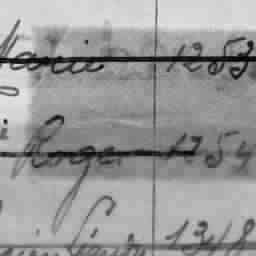 Marie 1253
Roger 1254
1348